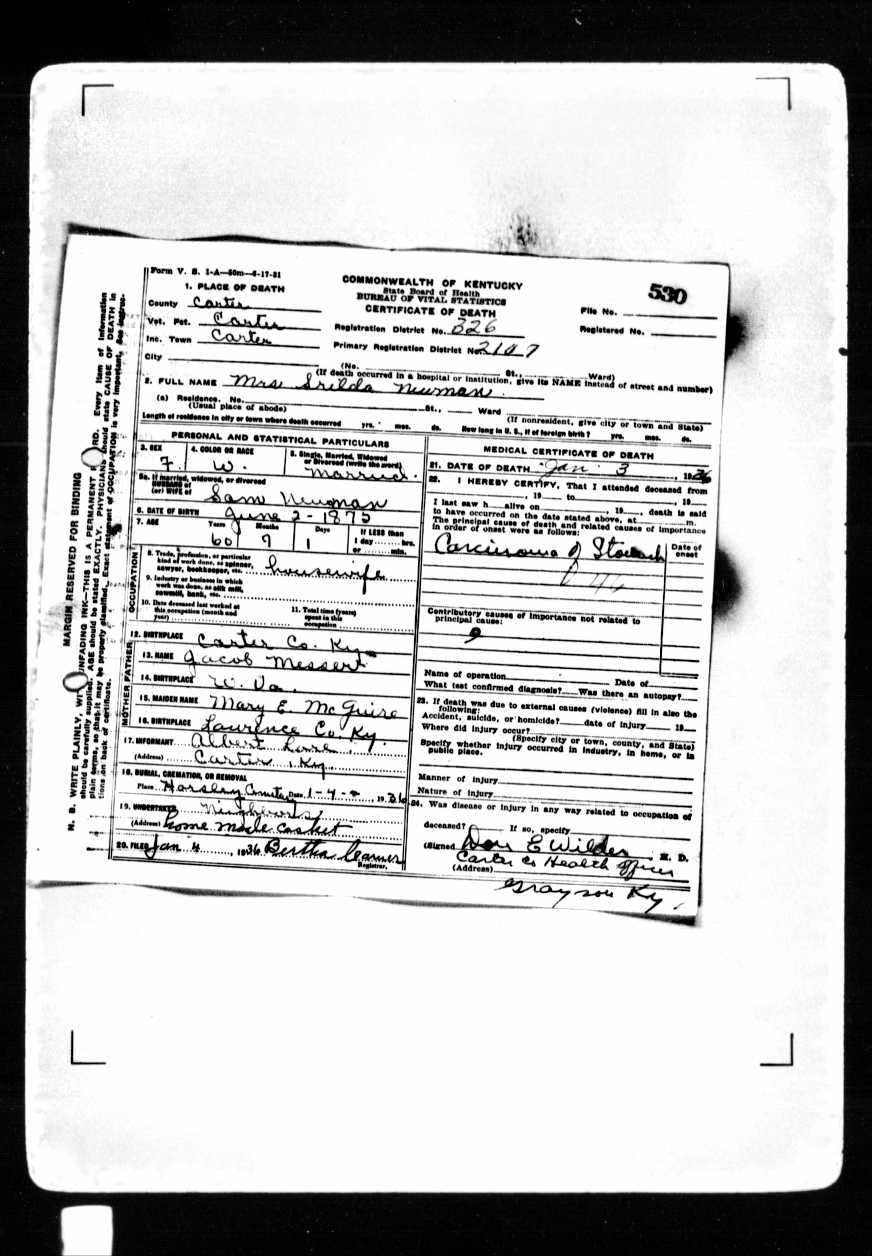 Form V. S. 1-A—50m—6-17-31
COMMONWEALTH OF KENTUCKY
State Board of Health
BUREAU OF VITAL STATISTICS
CERTIFICATE OF DEATH
530
File No.
Registered No.
Registration District No. 326
Primary Registration District No. 2107
1. PLACE OF DEATH
County Carter
Vot. Pct. Carter
Inc. Town Carter
City
(No. St., Ward)
(If death occurred in a hospital or institution, give its NAME instead of street and number)
2. FULL NAME Mrs Srilda Newman
(a) Residence. No. St., Ward
(Usual place of abode) (If nonresident, give city or town and State)
Length of residence in city or town where death occurred yrs. mos. ds. How long in U. S., if of foreign birth? yrs. mos. ds.
PERSONAL AND STATISTICAL PARTICULARS
3. SEX F.
4. COLOR OR RACE W.
5. Single, Married, Widowed or Divorced (write the word) Married.
5a. If married, widowed, or divorced
HUSBAND of
(or) WIFE of Sam Newman
6. DATE OF BIRTH June 2-1875
7. AGE Years 60 Months 7 Days 1 If LESS than 1 day hrs. or min.
OCCUPATION
8. Trade, profession, or particular kind of work done, as spinner, sawyer, bookkeeper, etc. housewife
9. Industry or business in which work was done, as silk mill, sawmill, bank, etc.
10. Date deceased last worked at this occupation (month and year)
11. Total time (years) spent in this occupation
12. BIRTHPLACE Carter Co. Ky.
FATHER
13. NAME Jacob Messer
14. BIRTHPLACE W. Va.
MOTHER
15. MAIDEN NAME Mary E. McGuire
16. BIRTHPLACE Lawrence Co. Ky.
17. INFORMANT Albert
(Address) Carter, Ky.
18. BURIAL, CREMATION, OR REMOVAL
Place Horsley Cemetery Date 1-4- 1936
19. UNDERTAKER Neighbors
(Address) home made casket
20. FILED Jan 4, 1936 Bertha
Registrar.
MEDICAL CERTIFICATE OF DEATH
21. DATE OF DEATH Jan 3, 1936
22. I HEREBY CERTIFY, That I attended deceased from
, 19 to , 19
I last saw h alive on , 19 , death is said
to have occurred on the date stated above, at m.
The principal cause of death and related causes of importance
in order of onset were as follows:
Date of onset
Carcinoma of Stomach
Contributory causes of importance not related to
principal cause:
Name of operation Date of
What test confirmed diagnosis? Was there an autopsy?
23. If death was due to external causes (violence) fill in also the
following:
Accident, suicide, or homicide? date of injury 19
Where did injury occur?
(Specify city or town, county, and State)
Specify whether injury occurred in industry, in home, or in
public place.
Manner of injury
Nature of injury
24. Was disease or injury in any way related to occupation of
deceased? If so, specify
(Signed Don E Wilder M. D.
Carter Co Health Officer
(Address)
Grayson Ky.
MARGIN RESERVED FOR BINDING
N. B. WRITE PLAINLY, WITH UNFADING INK—THIS IS A PERMANENT RECORD. Every item of information
should be carefully supplied. AGE should be stated EXACTLY. PHYSICIANS should state CAUSE OF DEATH in
plain terms, so that it may be properly classified. Exact statement of OCCUPATION is very important. See instruc-
tions on back of certificate.